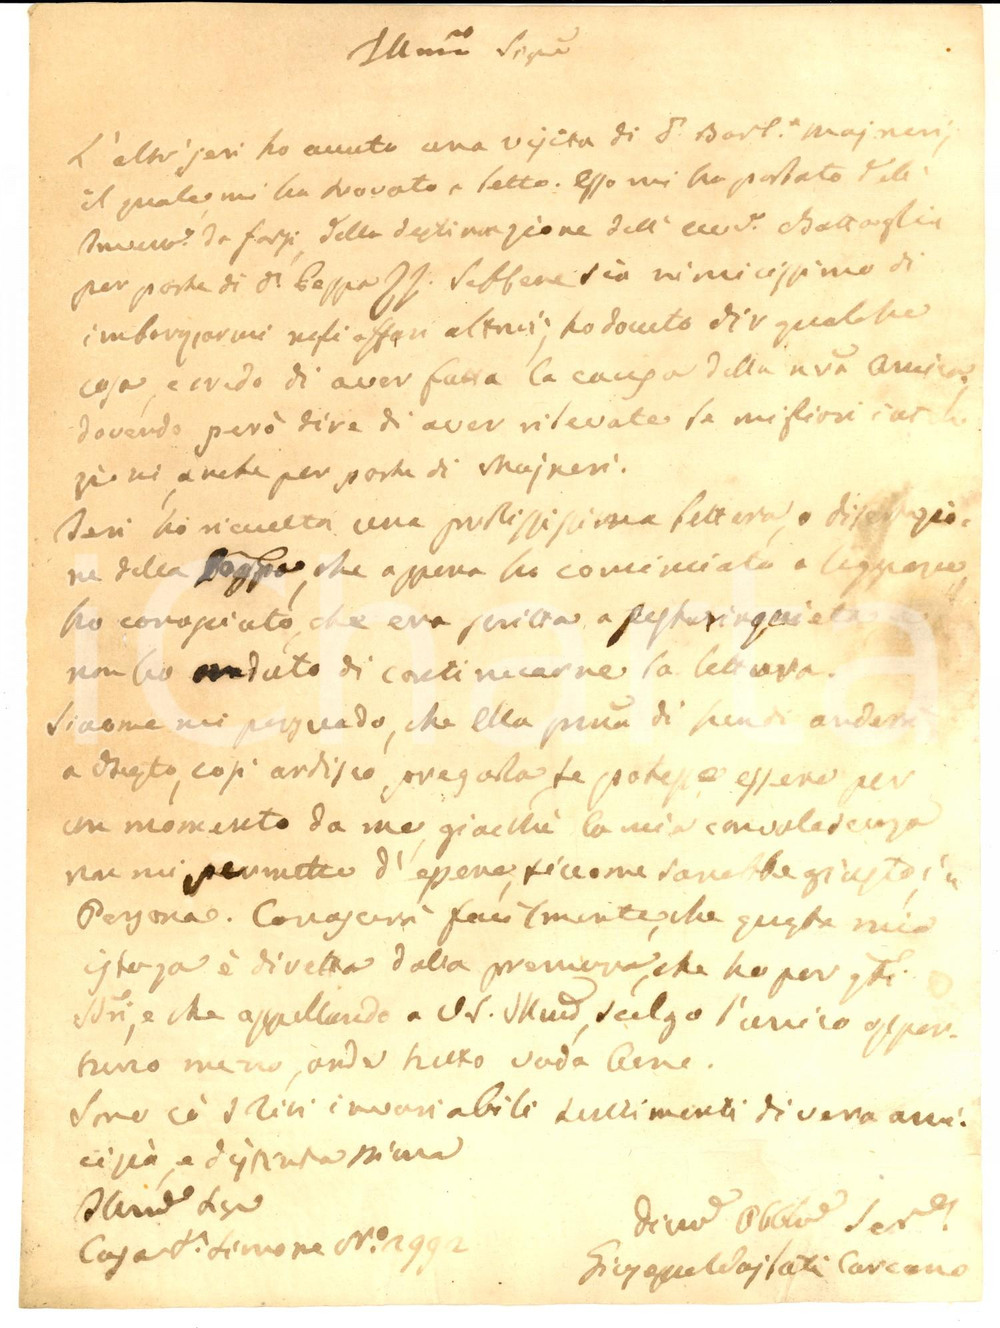 Illmo Sige
L'altr'jeri ho avuto una visita di Dn Bart.o Majneri,
il quale mi ha trovato a letto. Esso mi ha parlato dell'
da farsi, della destinazione dell' Battaglia
per parte di Da Beppa Sebbene sia nimicissimo di
negli affari altrui, ho dovuto dir qualche
cosa, e credo di aver fatta la causa della nra Amica,
dovendo però dire di aver rilevate le migliori
zioni, anche per parte di Majneri.
Jeri ho ricevuta una prolississima lettera, o dissertazio-
ne della che appena ho cominciato a leggere,
ho conosciuto, che era scritta a testa inquieta, e
non ho creduto di continuarne la lettura.
Siccome mi persuado, che Ella pma di
a Desio, così ardisco pregarla, se potesse essere per
un momento da me, giacchè la mia convalescenza
non mi permette d'essere, siccome sarebbe giusto, in
Persona. Conoscerà facilmente, che questa mia
istanza è diretta dalla premura, che ho per gli
e che appellando a V.S. Illma, scelgo l'unico oppor-
tuno mezzo, onde tutto vada bene.
Sono co' soliti invariabili sentimenti di vera ami-
cizia, e distinta stima
Illmo Sige
Casa Sn Simone N.o 2992
Divmo Obblmo Serve
Giuseppe Vajlati Carcano
iCharta